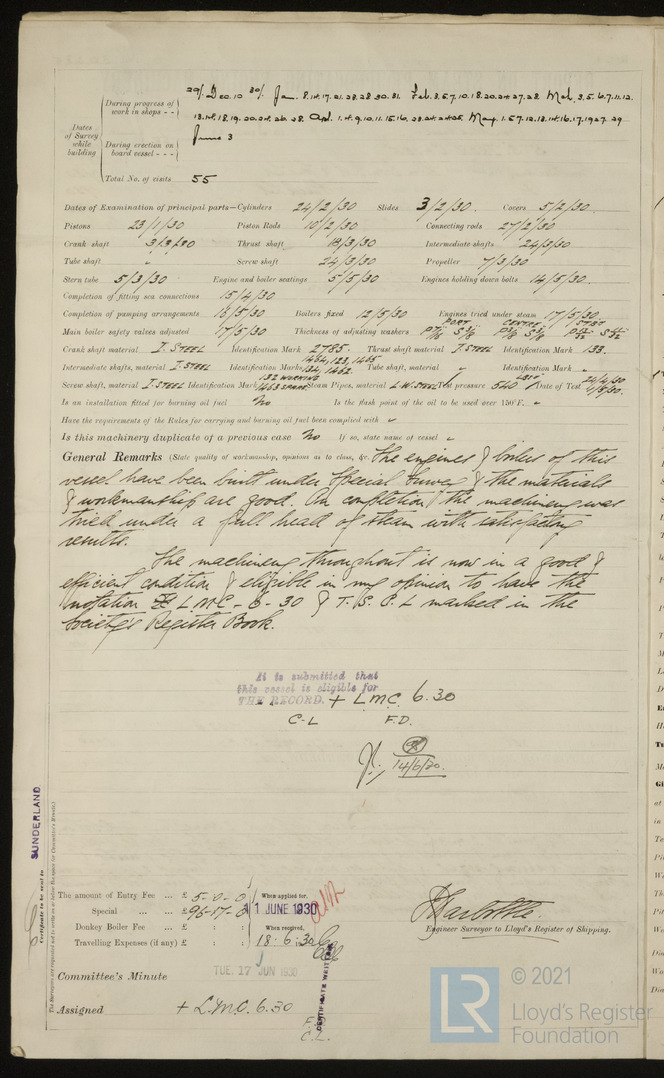 Dates of Survey while building
During progress of work in shops - -
29/. Dec. 10 30/. Jan. 8.14.17.21.23.28.30.31. Feb. 3.5.7.10.18.20.24.27.28 Mch. 3.5.6.7.11.12.
13.14.18.19.20.24.26.28. Apl. 1.4.9.10.11.15.16. 23.24. May. 1.5.7.12.13.14.16.17.19.27.29
During erection on board vessel - - -
June 3
Total No. of visits 55
Dates of Examination of principal parts—Cylinders 24/2/30 Slides 3/2/30. Covers 5/2/30.
Pistons 23/1/30 Piston Rods 10/2/30 Connecting rods 27/2/30
Crank shaft 3/3/30 Thrust shaft 18/3/30 Intermediate shafts 24/3/30
Tube shaft " Screw shaft 24/3/30 Propeller 7/3/30
Stern tube 5/3/30 Engine and boiler seatings 5/5/30 Engines holding down bolts 14/5/30.
Completion of fitting sea connections 15/4/30
Completion of pumping arrangements 16/5/30 Boilers fixed 12/5/30 Engines tried under steam 17/5/30
Main boiler safety valves adjusted 17/5/30 Thickness of adjusting washers PORT CENTRE STBD
Crank shaft material I. STEEL Identification Mark 2785. Thrust shaft material I. STEEL Identification Mark 133.
Intermediate shafts, material I. STEEL Identification Marks 1464, 123, 1465 134, 1462. Tube shaft, material Identification Mark
Screw shaft, material I. STEEL Identification Mark 132 WORKING 1463 SPARE Steam Pipes, material L.W. STEEL Test pressure 540 Date of Test 24/4/30
Is an installation fitted for burning oil fuel No Is the flash point of the oil to be used over 150°F.
Have the requirements of the Rules for carrying and burning oil fuel been complied with
Is this machinery duplicate of a previous case No If so, state name of vessel
General Remarks (State quality of workmanship, opinions as to class, &c. The engines & boilers of this
vessel have been built under Special Survey & the materials
& workmanship are good. On completion the machinery was
tried under a full head of steam with satisfactory
results.
The machinery throughout is now in a good &
efficient condition & eligible in my opinion to have the
notation + LMC - 6 - 30 & T. S. C. L marked in the
Society's Register Book.
It is submitted that
this vessel is eligible for
THE RECORD. + LMC. 6.30
C.L F.D.
14/6/30.
SUNDERLAND
Certificate to be sent to
The Surveyors are requested not to write on or below the space for Committee's Minute.
The amount of Entry Fee ... £ 5 - 0 - 0
Special ... ... £ 96-17-0
Donkey Boiler Fee ... £ : :
Travelling Expenses (if any) £ : :
When applied for,
11 JUNE 1930
When received,
18.6.30
Engineer Surveyor to Lloyd's Register of Shipping.
Committee's Minute TUE. 17 JUN 1930
Assigned + L.M.C. 6.30
F.D.
C.L.
CERTIFICATE WRITTEN
LR
© 2021
Lloyd's Register
Foundation